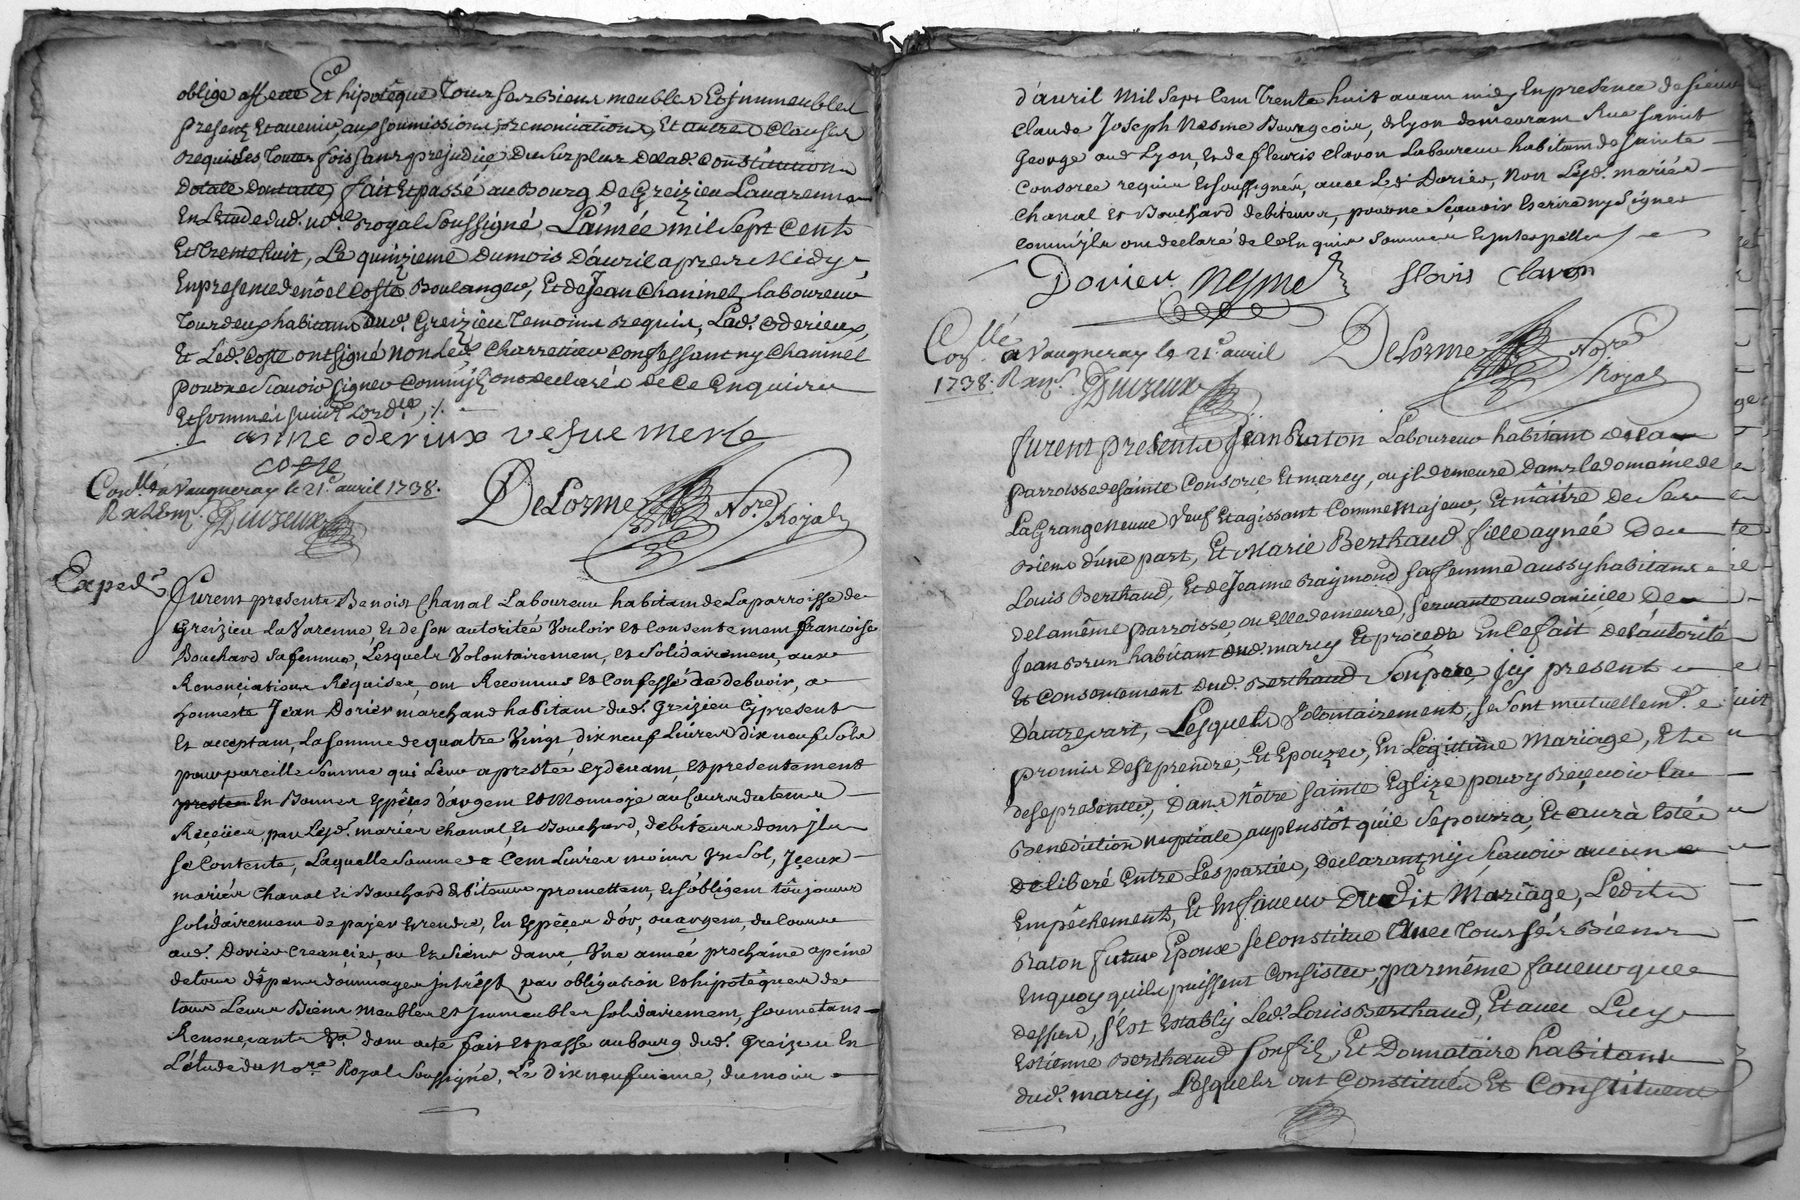 oblige affecte Et hipotêque Tous ses Biens meubles Et jmmeubles
present Et avenir aux soumissions, renonciations, Et autres Clauses
requises Toutes fois sans prejudice Du surplus Delad. Constitution
Dotale fait Et passé au Bourg De Greizieu Lavarenne
En Letude dud. no.re Royal soussigné, L'année mil sept cents
Et Trente huit, Le quinzieme Du mois D'auril apres Midy,
En presence de nôel Coste Boulanger, Et de Jean Chaninel laboureur
Tous deux habitans dud. Greizieu Temoins requis, Lad. Oderieux,
Et Led. Coste ont signé non led. Charretier Confessant ny Chaninel
pour ne scauoir signer Comm'jls ont declarés de Ce Enquis
Et sommés suiut Lord.ce ./.
anne oderiux vesue merle
coste
Con.llé a Vaugneray le 21.e auril 1738.
DeLorme No.re Royal
Exped.é
Furent presents Benoist Chanal Laboureur habitant de Laparroisse de
Greizieu La Varenne, Et de son autoritée Vouloir et Consentement francoise
Bouchard sa femme, Lesquels Volontairement, et solidairement, aux
Renonciations Requises, ont Reconnus et Confessé de debuoir, a
honneste Jean Dorier marchand habitant dud. Greizieu Cy present
Et acceptant, La somme de quatre Vingt dix neuf Liures dix neuf sols
pour pareille somme qui Leur a presté cydeuant, et presentement
En Bonnes Espêces d'argent et Monnoje au Cours du tems
Reçües, par Lesd. mariés Chanal, et Bouchard, debiteurs dont jls
se Contente, Laquelle somme de Cent Liures moins Un Sol, Jçeux
mariés Chanal Et Bouchard debiteurs promettent, et s'obligent toûjours
solidairement de payer Et rendre, En Espêçes d'or, ou argent, du Cours
aud. Dorier Creançier, ou Es siens dans, Vne année prochaine a peine
de tous dêpens dommages jntrêst par obligation Et hipotêques de
tous Leurs Biens meubles et Jmmeubles solidairement, soumetans
Renonçants &a dont acte fait Et passé au bourg dud. Greizieu En
L'étude du No.re Royal soussigné, Le dix neufuieme, du mois
d'auril Mil Sept Cent Trente huit auant midy En presence de sieur
Claude Joseph Nesme Bourgeois, de lyon demeurant Rue saint
George aud. Lyon, Et de fleuris Clavon Laboureur habitant de sainte
Consorce requis Et soussignés, auec Led. Dorier, Non Lesd. mariés
Chanal et Bouchard debiteurs, pour ne Scauoir Escrire ny Signer
Comm'jls ont declaré de Ce Enquis Sommés Et jnterpellés
Dorier Nesme flouis Clavon
Con.llé a Vaugneray le 21.e auril
1738.
DeLorme No.re Royal
furent presents Jean Raton Laboureur habitant de la
parroisse de Sainte Consorce Et marcy, ou jl demeure dans le domaine de
La Grange neuue Veuf Et agissant Comme Majeur, Et maitre de Ses
Biens d'une part, Et Marie Berthaud fille aynée de
Louis Berthaud, Et de Jeanne Raymond sa femme aussy habitans
de la même parroisse, ou Elle demeure, Seruante au domicile De
Jean Brun habitant dud. marcy Et procede En Ce fait de l'autorité
Et consentement dud. Berthaud Son pere, jcy present
D'autre part, Lesquels Volontairement, se sont mutuellem.t
promis De se prendre, Et Epouzer, En Legittime Mariage, Et
de se presenter, Dans Nôtre sainte Eglize pour y Reçeuoir la
Benediction nuptiale au plustôt qu'il se pourra, Et aura Estée
Deliberé Entre Les parties, Declarants ny Scauoir aucun
Empêchement, Et En faueur Du Dit Mariage, Ledit
Raton futur Epoux se Constitue Auec Tous sés Biens
En quoy qu'ils puissent Consister, par même faueur que
dessus, s'Est Establÿ Led. Louis Berthaud, Et auec Luy
Estienne Berthaud son fils, Et Donnataire habitans
dud. marcy, Lesquels ont Constitués Et Constituent